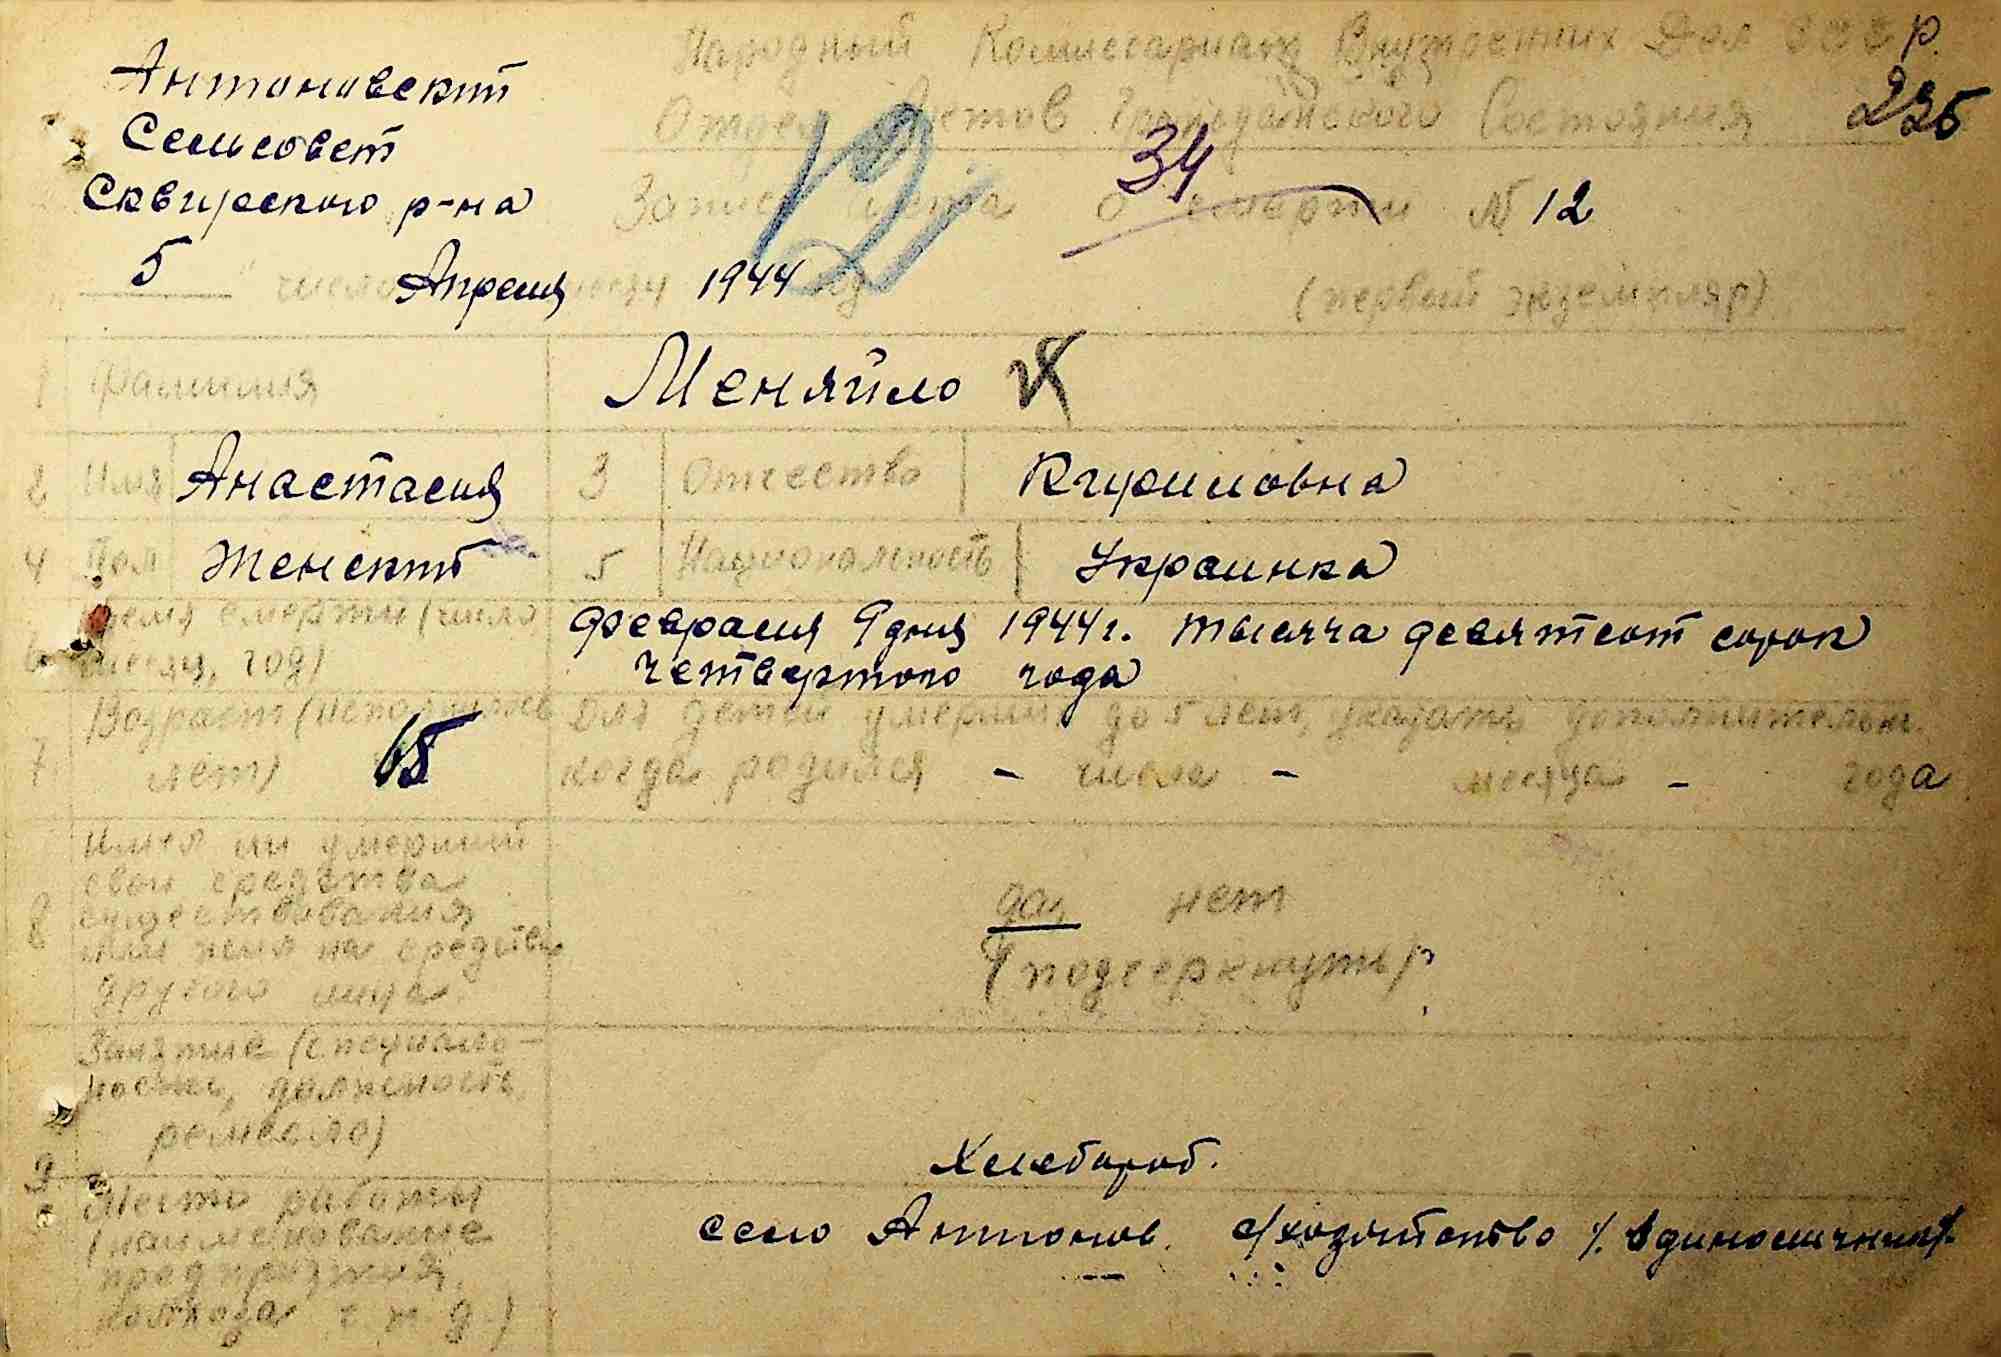 Народный Комиссариат Внутренних Дел СССР.
Антоновский
Отдел Актов Гражданского Состояния 226
Сельсовет
34
Сквирского р-на
Запись Акта о смерти № 12
12
5 " число Апреля 1944
(первый экземпляр)
1 Фамилия Меняйло
2 Имя Анастасия 3 Отчество Кириловна
4 Пол Женский 5 Национальность Украинка
6 Время смерти (число, месяц, год) Февраля 9 дня 1944 г. тысяча девятсот сорок
четвертого года
7 Возраст (исполнилось Для детей умерших до 5 лет, указать дополнительн.
лет) 65 когда родился - числа - месяца - года
Имел ли умерший
свои средства
8 существования да, нет
или жил на средства (подчеркнуть)
другого лица.
Занятие (специаль-
ность, должность,
ремесло)
9 Хлебороб.
Место работы
(наименование село Антонов. с/хозяйство /. Единоличник/.
предприятия,
колхоза т. п. д.)